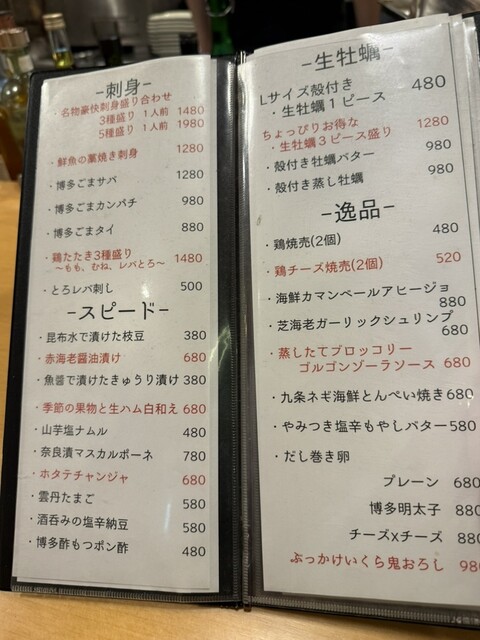 -刺身-
・名物豪快刺身盛り合わせ
3種盛り 1人前 1480
5種盛り 1人前 1980
・鮮魚の藁焼き刺身 1280
・博多ごまサバ 1280
・博多ごまカンパチ 980
・博多ごまタイ 880
・鶏たたき3種盛り
～もも、むね、レバとろ～ 1480
・とろレバ刺し 500
-スピード-
・昆布水で漬けた枝豆 380
・赤海老醤油漬け 680
・魚醬で漬けたきゅうり漬け 380
・季節の果物と生ハム白和え 680
・山芋塩ナムル 480
・奈良漬マスカルポーネ 780
・ホタテチャンジャ 680
・雲丹たまご 580
・酒呑みの塩辛納豆 580
・博多酢もつポン酢 480
-生牡蠣-
Lサイズ殻付き
・生牡蠣1ピース 480
ちょっぴりお得な
・生牡蠣3ピース盛り 1280
・殻付き牡蠣バター 980
・殻付き蒸し牡蠣 980
-逸品-
・鶏焼売(2個) 480
・鶏チーズ焼売(2個) 520
・海鮮カマンベールアヒージョ
880
・芝海老ガーリックシュリンプ
680
・蒸したてブロッコリー
ゴルゴンゾーラソース 680
・九条ネギ海鮮とんぺい焼き 680
・やみつき塩辛もやしバター 580
・だし巻き卵
プレーン 680
博多明太子 880
チーズxチーズ 880
ぶっかけいくら鬼おろし 980